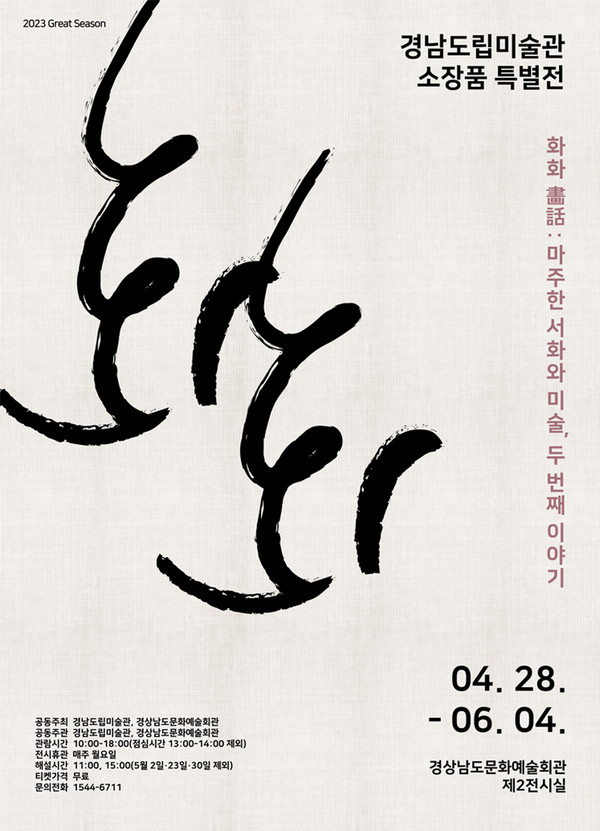 2023 Great Season
경남도립미술관
소장품 특별전
화화 畵話 : 마주한 서화와 미술, 두 번째 이야기
04. 28.
- 06. 04.
경상남도문화예술회관
제2전시실
공동주최 경남도립미술관, 경상남도문화예술회관
공동주관 경남도립미술관, 경상남도문화예술회관
관람시간 10:00-18:00(점심시간 13:00-14:00 제외)
전시휴관 매주 월요일
해설시간 11:00, 15:00(5월 2일·23일·30일 제외)
티켓가격 무료
문의전화 1544-6711